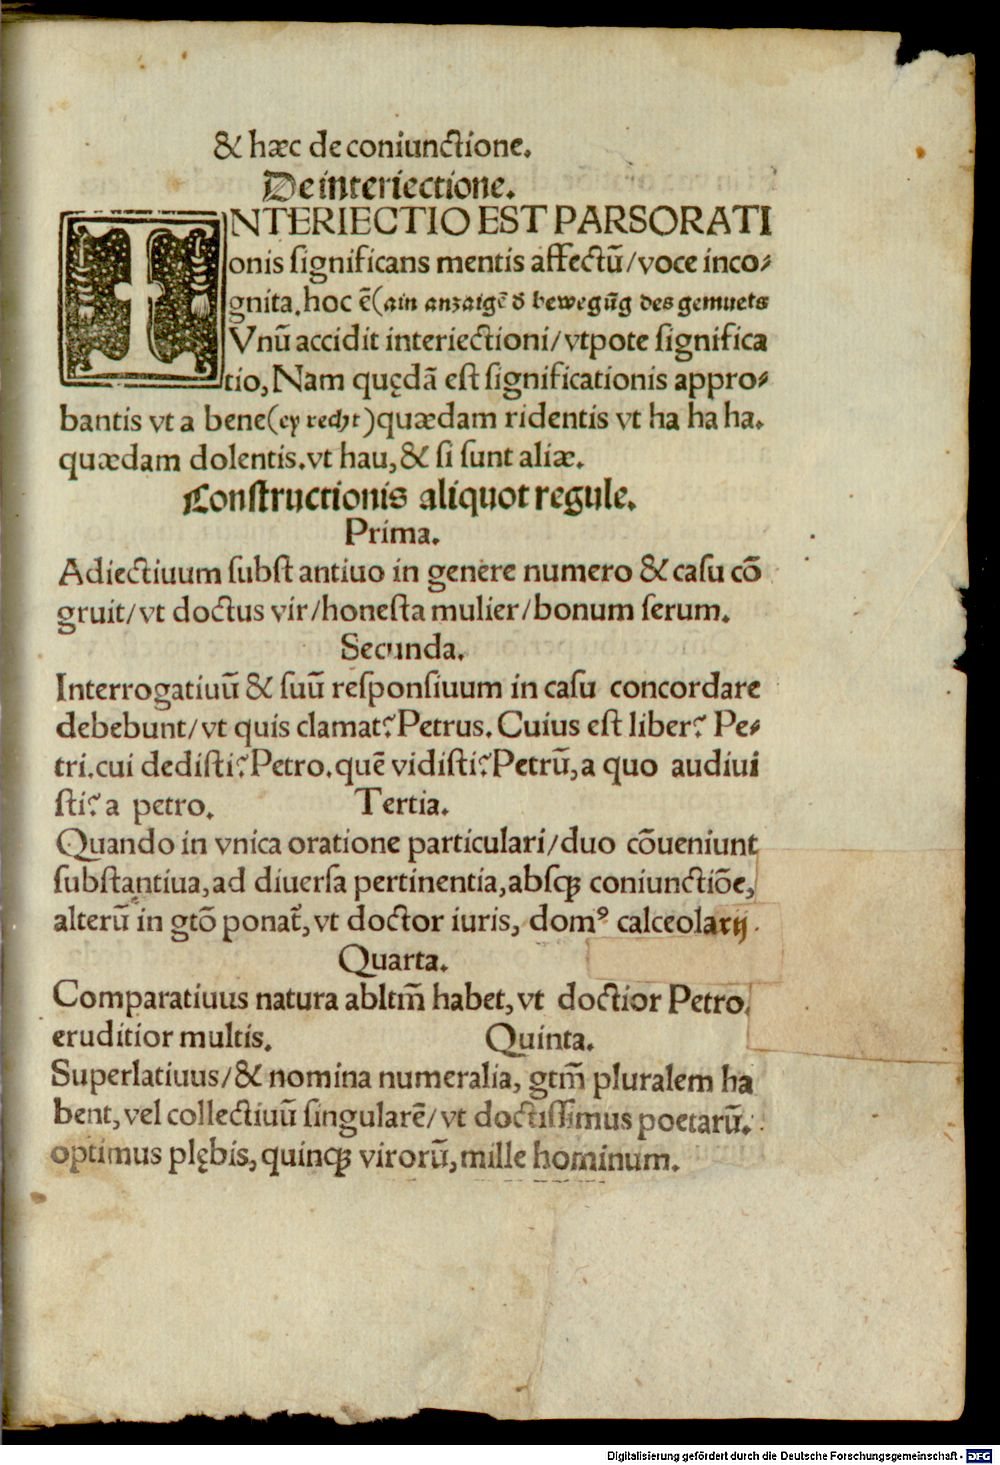 & hæc de coniunctione.
De interiectione.
INTERIECTIO EST PARSORATI
onis ſignificans mentis affectū/voce inco⸗
gnita, hoc ē(ain anzaigē đ bewegūg des gemuets
Vnū accidit interiectioni/vtpote ſignifica
tio, Nam quędā eſt ſignificationis appro⸗
bantis vt a bene(ey recht)quædam ridentis vt ha ha ha.
quædam dolentis.vt hau,& ſi ſunt aliæ.
Conſtructionis aliquot regule.
Prima.
Adiectiuum ſubſtantiuo in genere numero & caſu cō
gruit/vt doctus vir/honeſta mulier/bonum ſerum.
Secunda.
Interrogatiuū & ſuū reſponſiuum in caſu concordare
debebunt/vt quis clamat? Petrus. Cuius eſt liber? Pe⸗
tri.cui dediſti? Petro.quē vidiſti? Petrū,a quo audiui
ſti? a petro. Tertia.
Quando in vnica oratione particulari/duo cōueniunt
ſubſtantiua,ad diuerſa pertinentia,abſqꝫ coniunctiōe,
alterū in gtō ponat̄,vt doctor iuris, domꝰ calceolarij.
Quarta.
Comparatiuus natura abltm̄ habet,vt doctior Petro,
eruditior multis. Quinta.
Superlatiuus/& nomina numeralia, gtm̄ pluralem ha
bent,vel collectiuū ſingularē/vt doctiſſimus poetarū.
optimus plębis,quinqꝫ virorū,mille hominum.
Digitalisierung gefördert durch die Deutsche Forschungsgemeinschaft - DFG